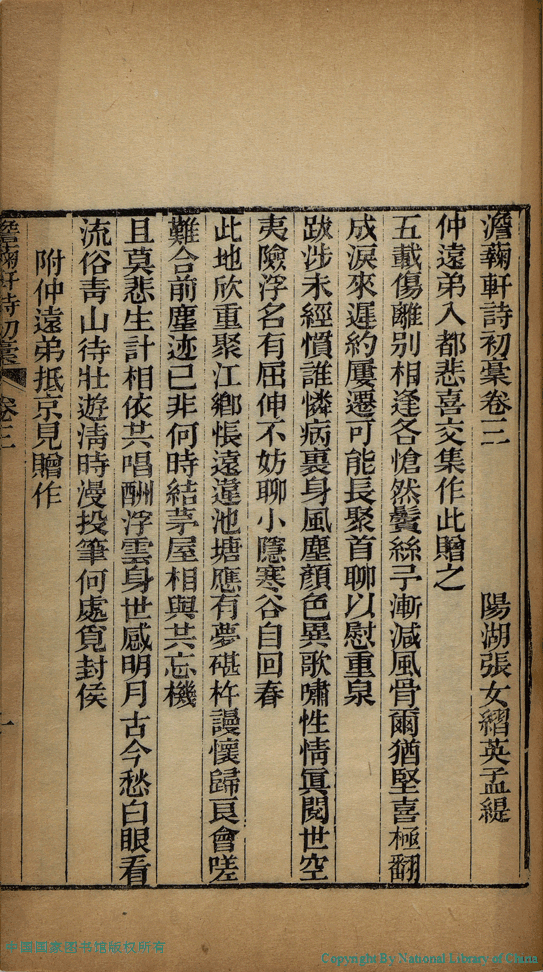 澹蘜軒詩初稾卷三
陽湖張女䌌英孟緹
仲遠弟入都悲喜交集作此贈之
五載傷離别相逢各愴然鬢絲予漸減風骨爾猶堅喜極翻
成淚來遲約屢遷可能長聚首聊以慰重泉
跋涉未經慣誰憐病裏身風塵顏色異歌嘯性情眞閱世空
夷險浮名有屈伸不妨聊小隱寒谷自回春
此地欣重聚江鄉悵遠違池塘應有夢碪杵謾懷歸良會嗟
難合前塵迹已非何時結茅屋相與共忘機
且莫悲生計相依共唱酬浮雲身世感明月古今愁白眼看
流俗靑山待壯遊淸時漫投筆何處覓封侯
附仲遠弟抵京見贈作
澹蘜軒詩初稾 卷三
一
中国国家图书馆版权所有
Copyright By National Library of China